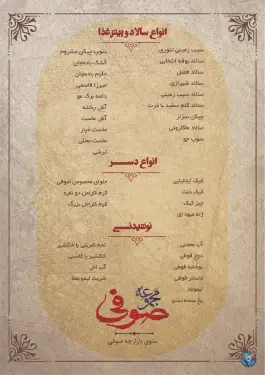 انواع سالاد و پیش غذا
سیب زمینی تنوری
سالاد بوقه انتخابی
سالاد فصل
سالاد شیرازی
سالاد سیب زمینی
سالاد کلم سفید با ذرت
سیزار
سالاد ماکارونی
سوپ جو
سوپ مشروم
کشک بادمجان
حلیم بادمجان
میرزا قاسمی
دلمه برگ مو
آش رشته
آش ماست
ماست خیار
ماست محلی
ترشی
انواع دسر
کیک ایتالیایی
کیک
چیز کیک
ژله میوه ای
حلوای مخصوص صوفی
کرم کارامل دو نفره
کرم کارامل بزرگ
نوشیدنی
آب معدنی
دوغ قوطی
نوشابه قوطی
دلستر قوطی
لیموناد
یخ بسته بندی
تخم شربتی با خاکشیر
خاکشیر با کاسنی
آب انار
شربت
مجموعه
صوفی
منوی بازارچه صوفی